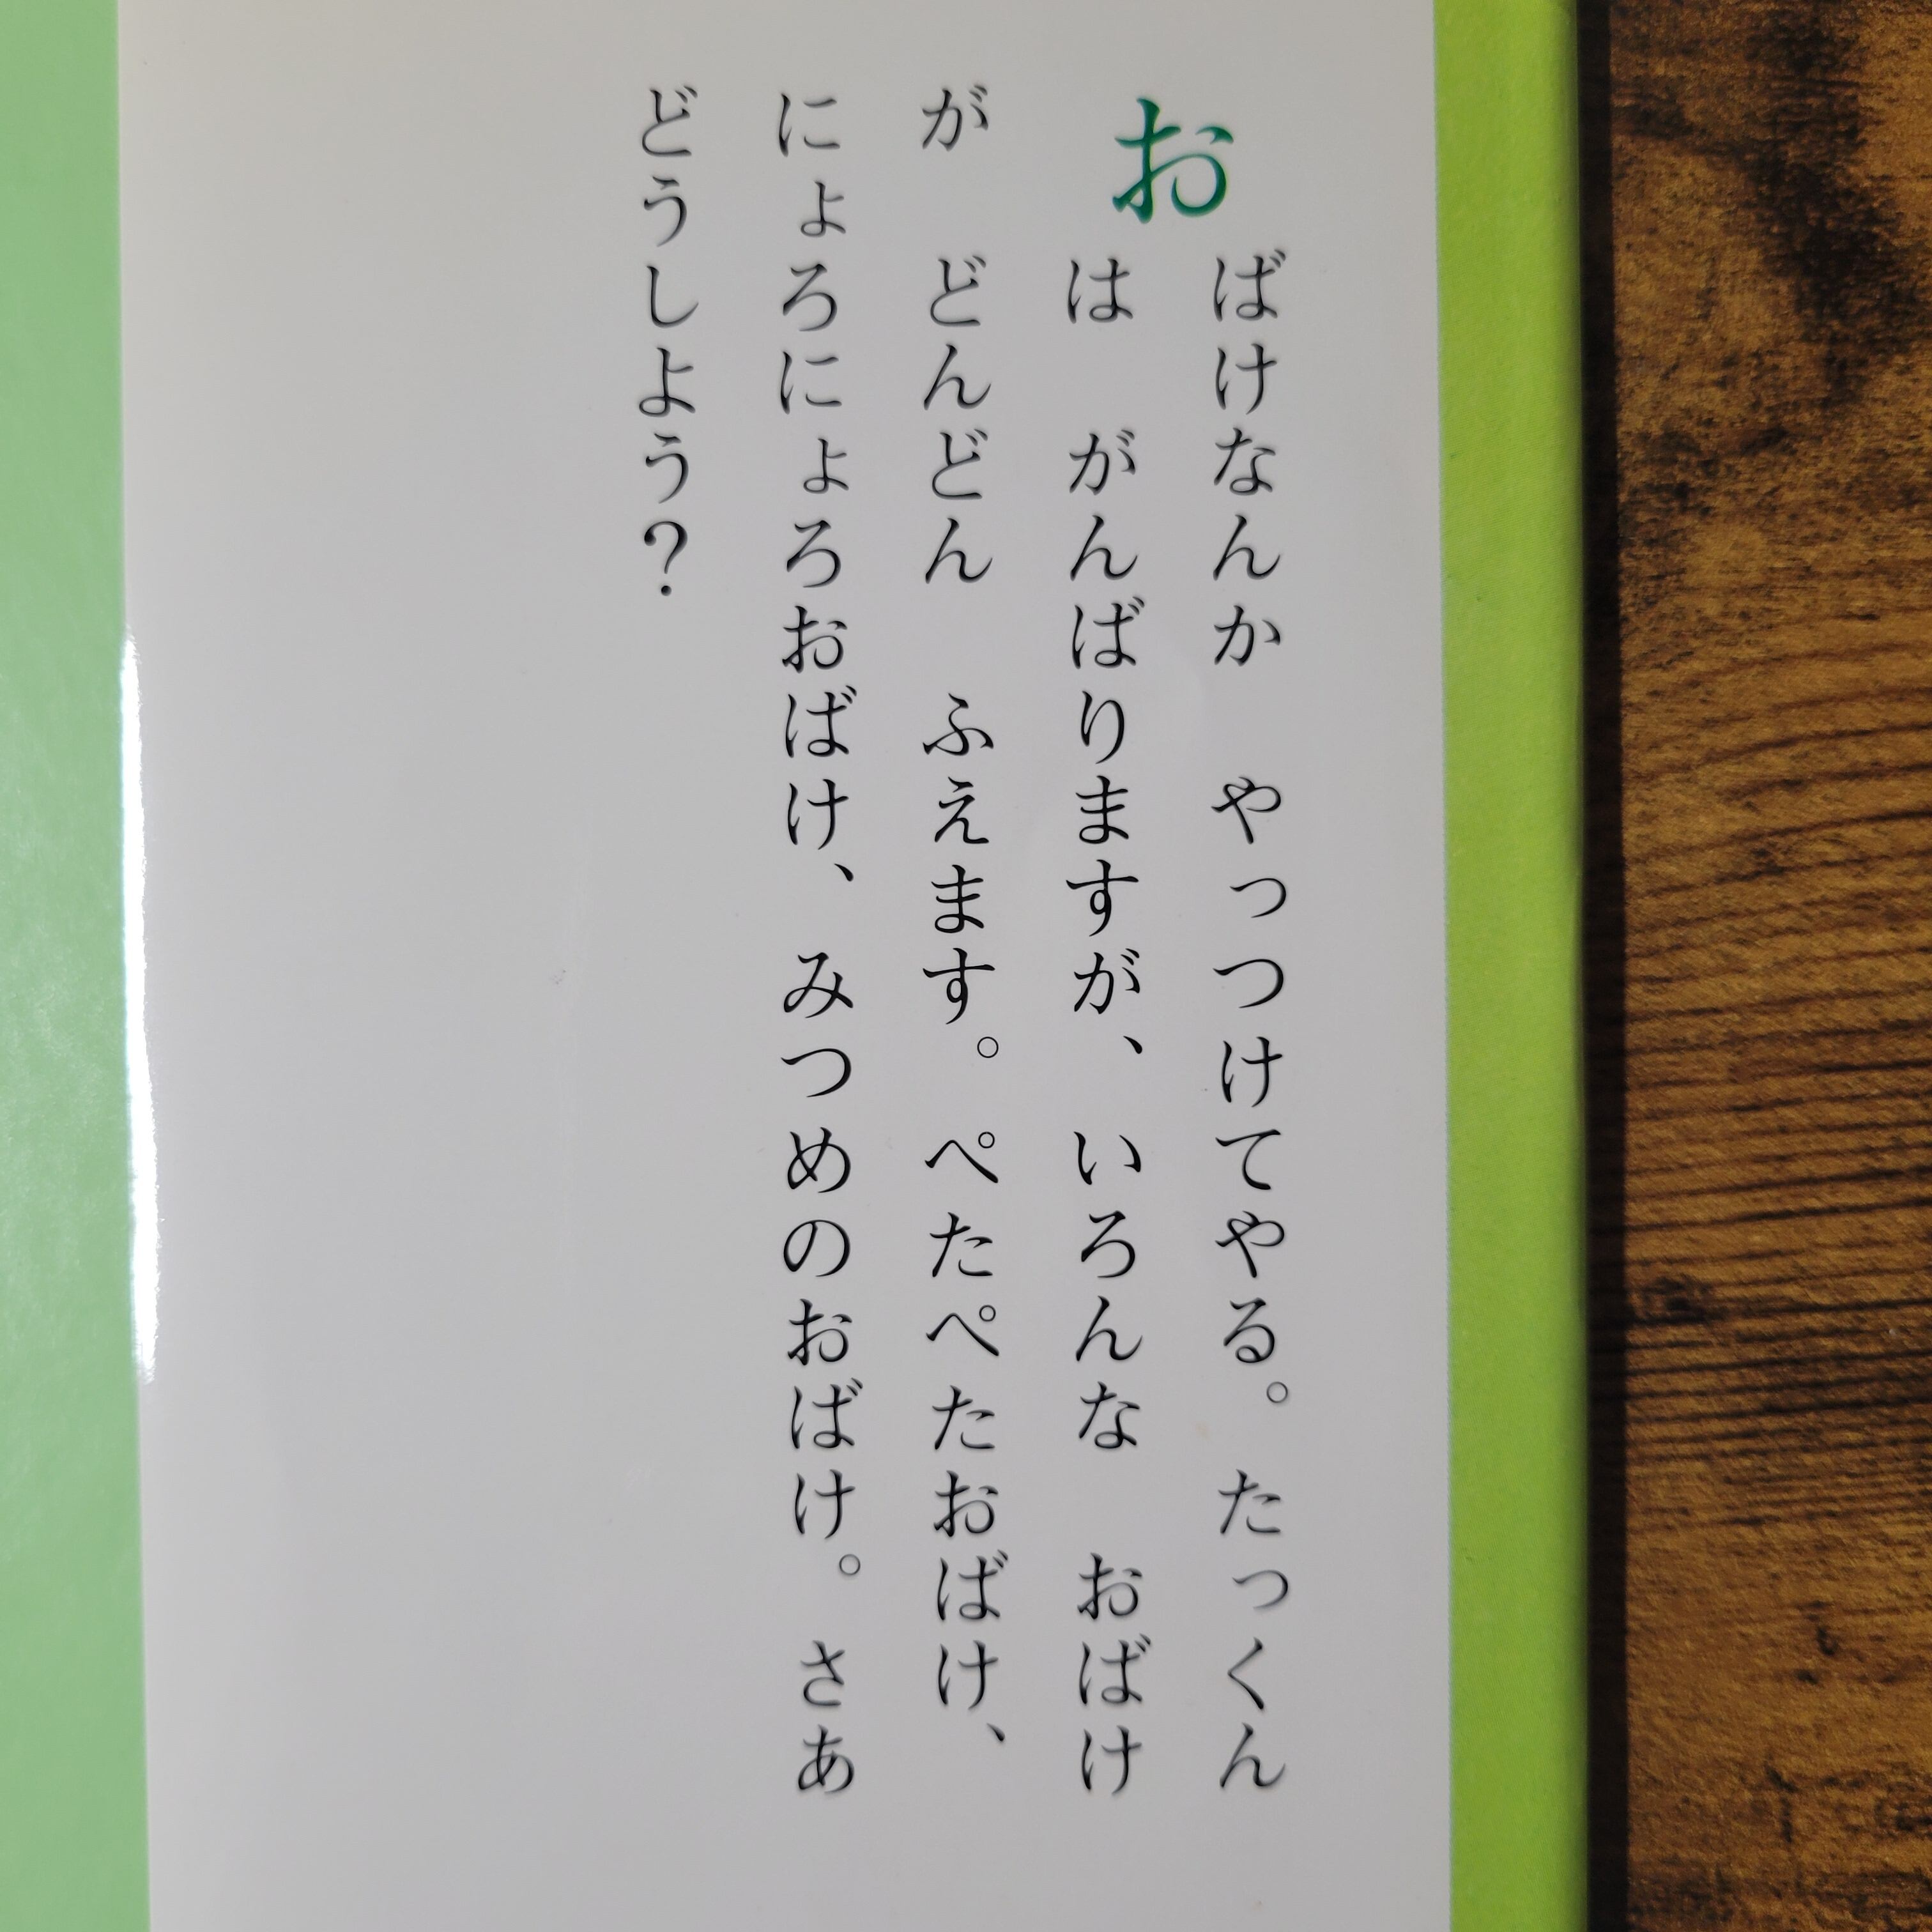 おばけなんか　やっつけてやる。たっくん
は　がんばりますが、いろんな　おばけ
が　どんどん　ふえます。ぺたぺたおばけ、
にょろにょろおばけ、みつめのおばけ。さあ
どうしよう？